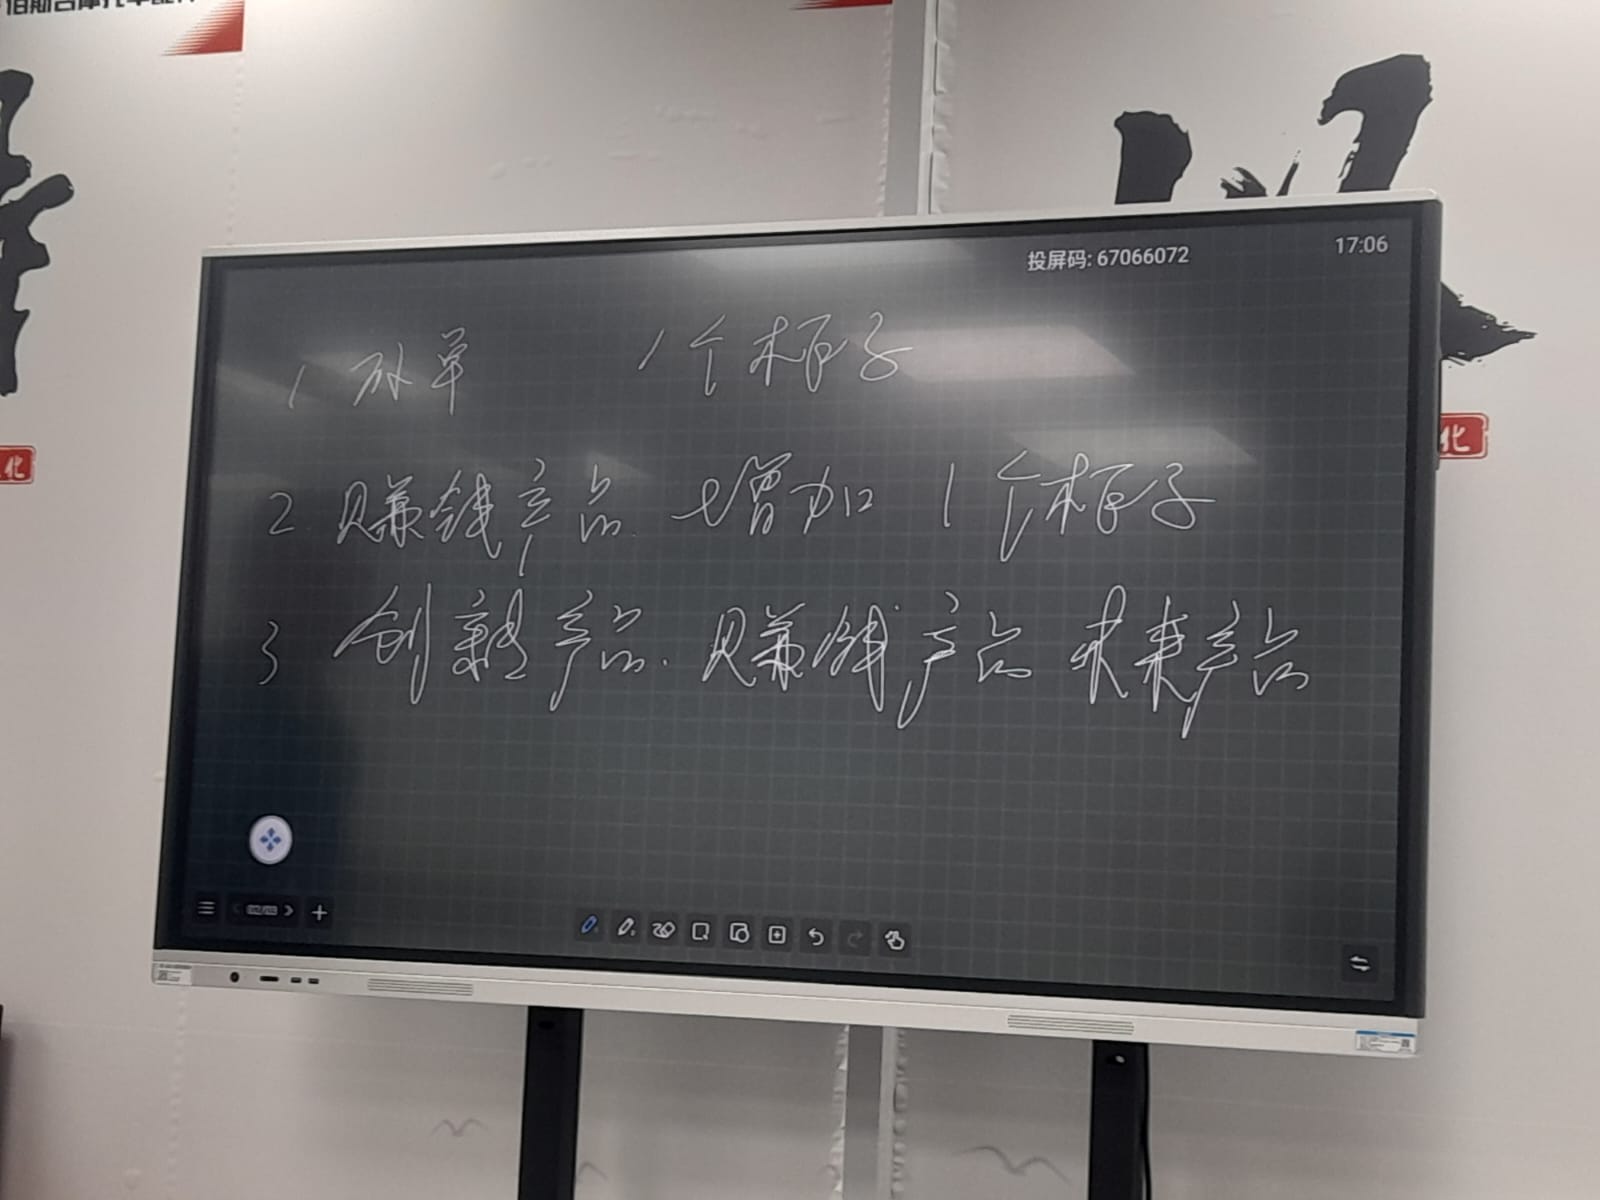 投屏码: 67066072
17:06
1 放单 1个柜子
2. 赚钱产品 增加 1个柜子
3 创新产品. 赚钱产品 未来产品
化
化